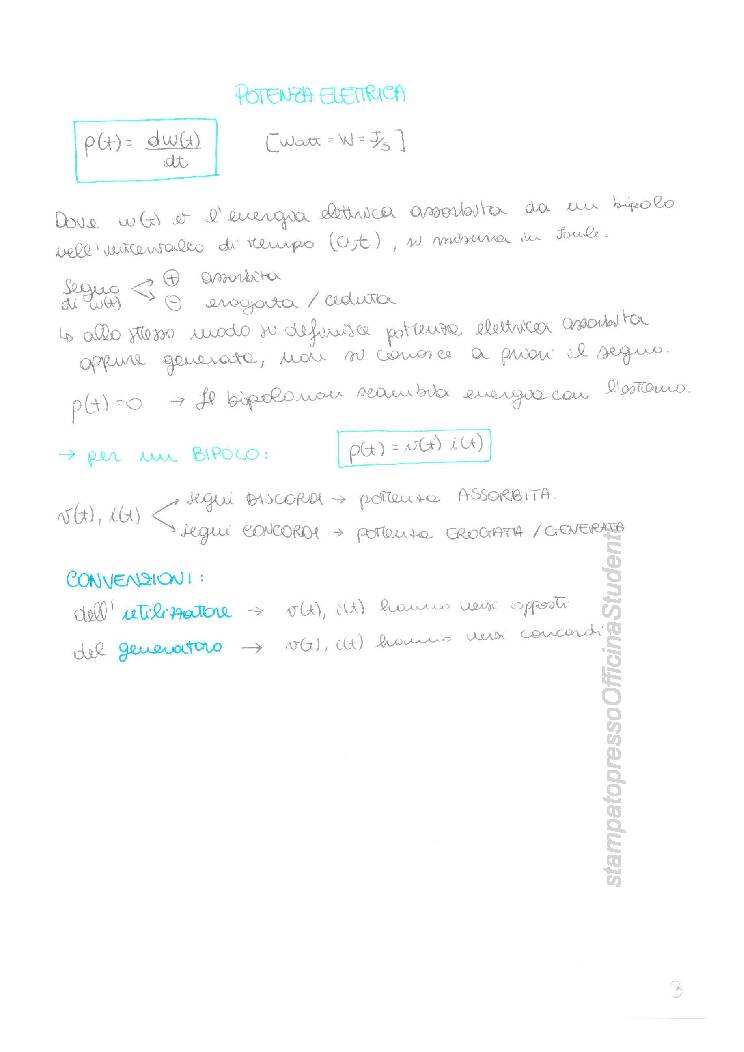 POTENZA ELETTRICA
p(t) = dw(t)/dt [Watt = W = J/s]
Dove w(t) è l'energia elettrica assorbita da un bipolo
nell'intervallo di tempo (0,t), si misura in Joule.
Segno di w(t) < ⊕ assorbita
⊖ erogata / ceduta
↳ allo stesso modo si definisce potenza elettrica assorbita
oppure generata, non si conosce a priori il segno.
p(t) = 0 → Il bipolo non scambia energia con l'esterno.
→ per un BIPOLO: p(t) = v(t) i(t)
v(t), i(t) < segni DISCORDI → potenza ASSORBITA.
segni CONCORDI → potenza EROGATA / GENERATA
CONVENZIONI:
dell'utilizzatore → v(t), i(t) hanno versi opposti
del generatore → v(t), i(t) hanno versi concordi
stampatopressoOfficinaStudenti
3